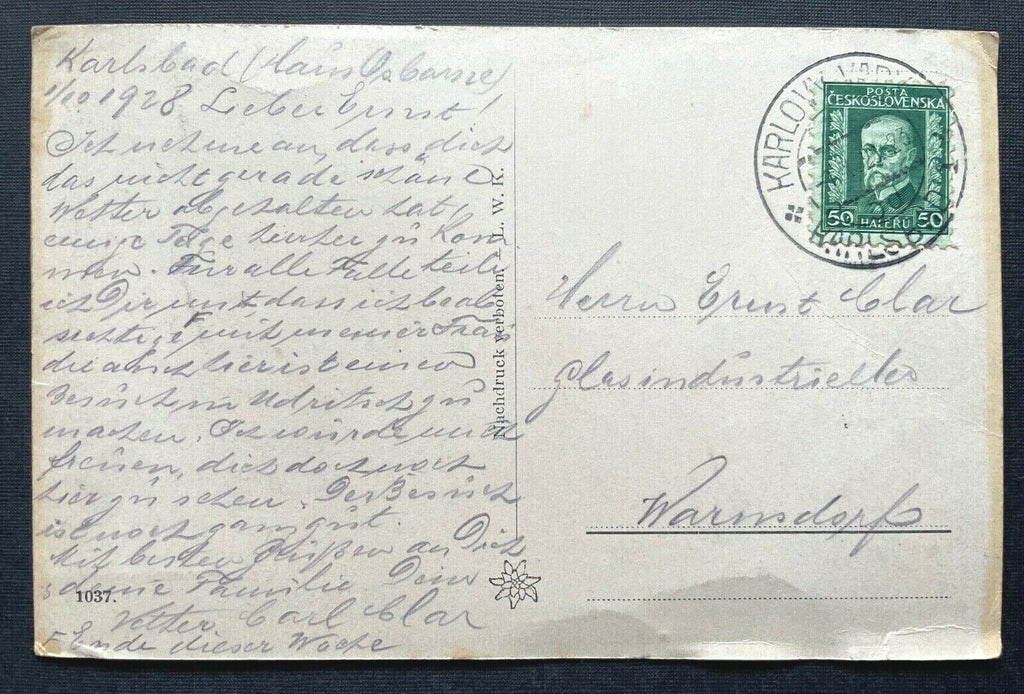 Karlsbad (Haus Osborne)
1/10 1928 Lieber Ernst!
Ich nehme an, dass dich
das nicht gerade schöne
Wetter abgehalten hat,
einige Tage hierher zu Kom
men. Für alle Fälle teile
ich Dir mit dass ich beab
sichtige mit meiner Frau
die auch hier ist einen
Besuch in Udritsch zu
machen. Ich würde mich
freuen, dich doch noch
hier zu sehen. Der Besuch
ist noch ganz gut.
Mit besten Grüßen an Dich
deine Familie Dein
Vetter Carl Clar
Ende dieser Woche
1037.
Nachdruck verboten. – L. W. K.
KARLOVY VARY
KARLSBAD
POSTA
ČESKOSLOVENSKÁ
50 HALÉŘŮ 50
Herrn Ernst Clar
Glasindustrieller
Warnsdorf